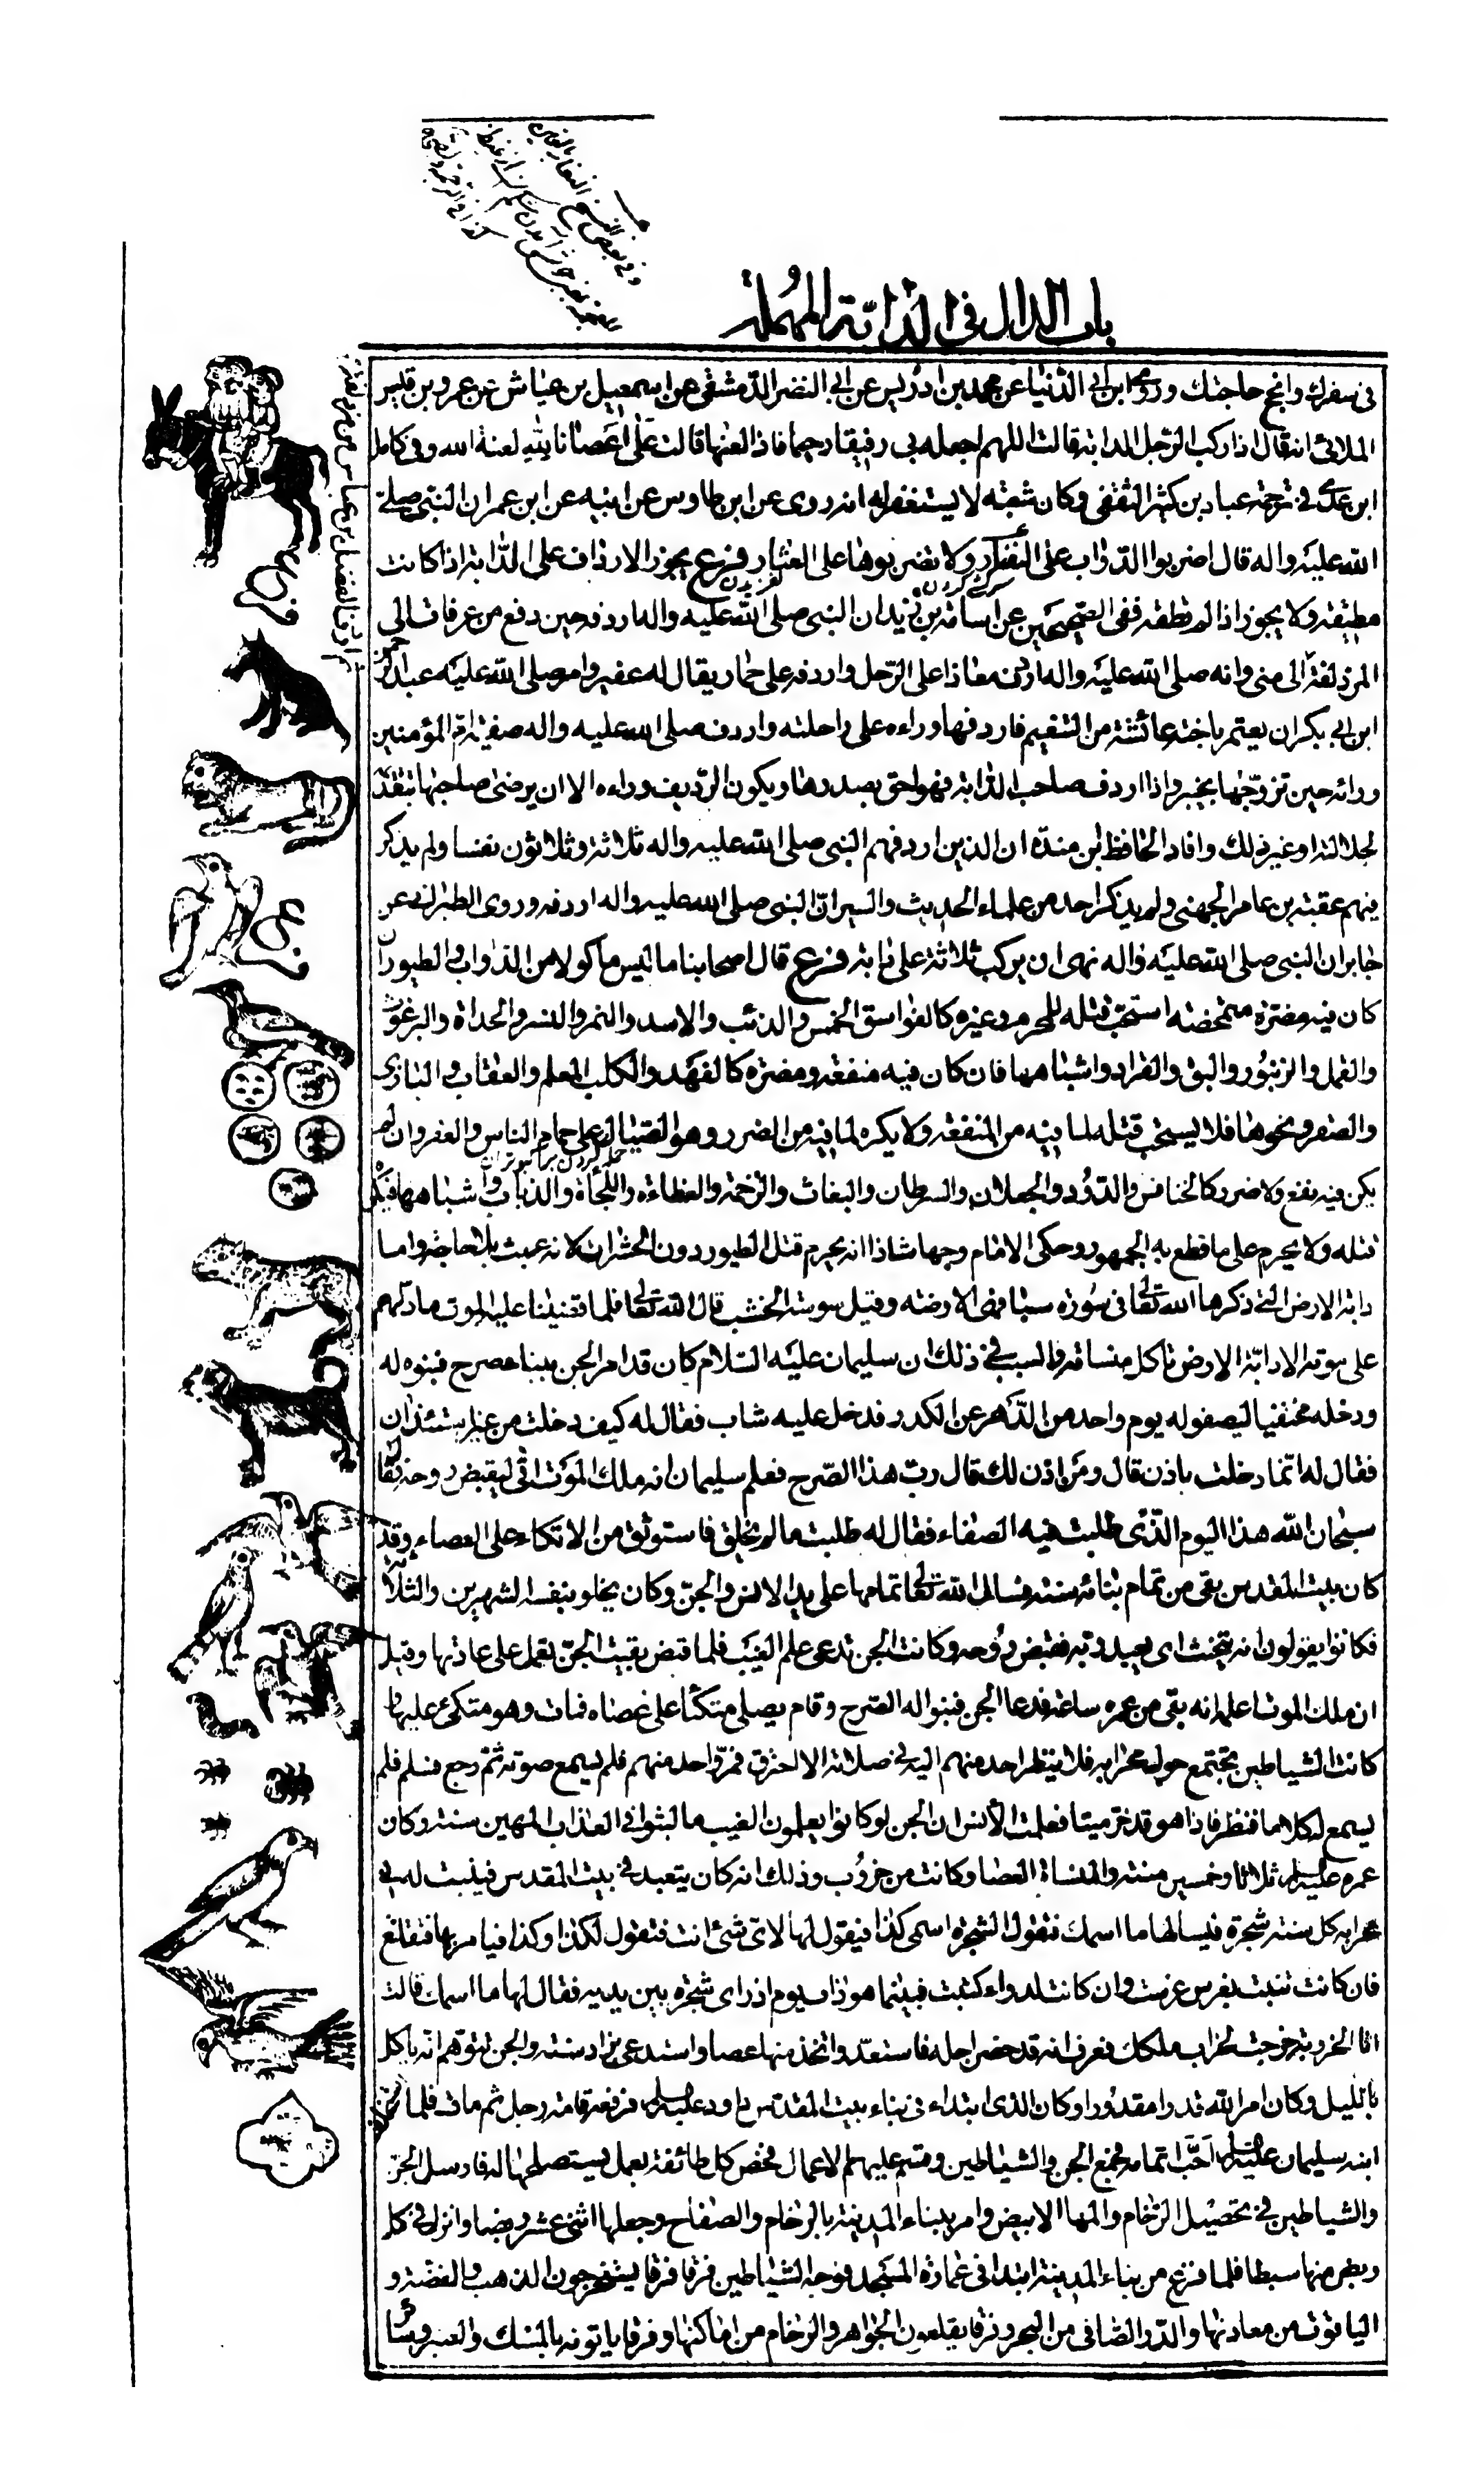 باب الدال في الدابة المهملة
في سفرك وانجح حاجتك وروى ابن ابى الدنيا عن محمد بن ادريس عن ابى النضر الدمشقى عن اسمعيل بن عياش عن عمرو بن قيس
الملائى انه قال اذا ركب الرجل الدابة قالت اللهم اجعله بى رفيقا رحيما فاذا لعنها قالت على اعصانا لله لعنة الله وفى كامل
ابن عدى فى ترجمة عباد بن كثير الثقفى وكان شعبة لا يستغفر له انه روى عن ابن طاوس عن ابيه عن ابن عمر ان النبى صلى
الله عليه واله قال اضربوا الدواب على النفار ولا تضربوها على العثار فرع يجوز الارداف على الدابة اذا كانت
مطيقة ولا يجوز اذا لم تطقه ففى الصحيحين عن اسامة بن زيد ان النبى صلى الله عليه واله اردفه حين دفع من عرفات الى
المزدلفة الى منى وانه صلى الله عليه واله اردف معاذا على الرحل واردفه على حمار يقال له عفير وامر صلى الله عليه عبد الرحمن
ابن ابى بكر ان يعتمر باخته عائشة من التنعيم فاردفها وراءه على راحلته واردف صلى الله عليه واله صفية ام المؤمنين
ورائه حين تزوجها بخيبر واذا اردف صاحب الدابة فهو احق بصدرها ويكون الرديف وراءه الا ان يرضى صاحبها بتقدمه
لجلالته او غير ذلك وافاد الحافظ ابن مندة ان الذين اردفهم النبى صلى الله عليه واله ثلاثة وثلاثون نفسا ولم يذكر
فيهم عقبة بن عامر الجهنى ولم يذكر احد من علماء الحديث والسير ان النبى صلى الله عليه واله اردفه وروى الطبرانى عن
جابر ان النبى صلى الله عليه واله نهى ان يركب ثلاثة على دابة فرع قال اصحابنا ما ليس ماكولا من الدواب والطيور ان
كان فيه مضرة متمحضة استحب قتله للمحرم وغيره كالفواسق الخمس والذئب والاسد والنمر والنسر والحداة والبرغوث
والقمل والزنبور والبق والقراد واشباهها فان كان فيه منفعة ومضرة كالفهد والكلب المعلم والعقاب والبازى
والصقر ونحوها فلا يستحب قتله لما فيه من المنفعة ولا يكره لما فيه من الضرر وهو الصيال على حمام الناس والعقر وان لم
يكن فيه نفع ولا ضرر كالخنافس والدود والجعلان والسرطان والبغاث والرخمة والعظاءة واللجاة والذباب واشباهها فيكره
قتله ولا يحرم على ما قطع به الجمهور وحكى الامام وجها شاذا انه يحرم قتل الطيور دون الحشرات لانه عبث بلا حاجة واما
دابة الارض التى ذكرها الله تعالى فى سورة سبا فهى الارضة وقيل سوسة الخشب قال الله تعالى فلما قضينا عليه الموت ما دلهم
على موته الا دابة الارض تاكل منساته والسبب فى ذلك ان سليمان عليه السلام كان قد امر الجن ببناء صرح فبنوه له
ودخله مختفيا ليصفو له يوم واحد من الدهر عن الكدر فدخل عليه شاب فقال له كيف دخلت من غير استئذان
فقال له انما دخلت باذن قال ومن اذن لك قال رب هذا الصرح فعلم سليمان انه ملك الموت اتى ليقبض روحه فقال
سبحان الله هذا اليوم الذى طلبت فيه الصفاء فقال له طلبت ما لم يخلق فاستوثق من الاتكاء على العصاء وقد
كان بيت المقدس بقى من تمام بنائه سنة فسال الله تعالى تمامها على يد الانس والجن وكان يخلو بنفسه الشهرين والثلاثة
فكانوا يقولون انه يتحنث اى يعبد ربه فقبض روحه وكانت الجن تدعى علم الغيب فلما قبض بقيت الجن تعمل على عادتها وقيل
ان ملك الموت اعلمه انه بقى من عمره ساعة فدعا الجن فبنوا له الصرح وقام يصلى متكئا على عصاه فمات وهو متكئ عليها
كانت الشياطين تجتمع حول محرابه فلا ينظر احد منهم اليه فى صلاته الا احترق فمر واحد منهم فلم يسمع صوته ثم رجع فسلم فلم
يسمع له كلاما فنظر فاذا هو قد خر ميتا فعلمت الانس ان الجن لو كانوا يعلمون الغيب ما لبثوا فى العذاب المهين سنة وكان
عمره عليه السلام ثلاثا وخمسين سنة والمنساة العصا وكانت من خروب وذلك انه كان يتعبد فى بيت المقدس فينبت له فى
محرابه كل سنة شجرة فيسالها ما اسمك فتقول الشجرة اسمى كذا فيقول لها لاى شئ انت فتقول لكذا وكذا فيامر بها فتقلع
فان كانت تنبت بغرس غرست وان كانت لدواء كتبت فبينما هو ذات يوم اذ راى شجرة بين يديه فقال لها ما اسمك قالت
انا الخروبة خرجت لخراب ملكك فعرف انه قد حضر اجله فاستعد واتخذ منها عصا واستدعى بزاد سنة والجن تتوهم انه ياكل
بالليل وكان امر الله قدرا مقدورا وكان الذى ابتداء فى بناء بيت المقدس داود عليه السلام فرفعه قامة رجل ثم مات فلما
ابنه سليمان عليه السلام احب اتمامه فجمع الجن والشياطين وقسم عليهم الاعمال فخص كل طائفة بعمل يستصلحها له فارسل الجن
والشياطين فى تحصيل الرخام والمها الابيض وامر ببناء المدينة بالرخام والصفاح وجعلها اثنى عشر ربضا وانزل فى كل
ربض منها سبطا فلما فرغ من بناء المدينة ابتدا فى عمارة المسجد فوجه الشياطين فرقا فرقا يستخرجون الذهب والفضة و
الياقوت من معادنها والدر الصافى من البحر وفرقا يقلعون الجواهر والرخام من اماكنها وفرقا ياتونه بالمسك والعنبر وسائر